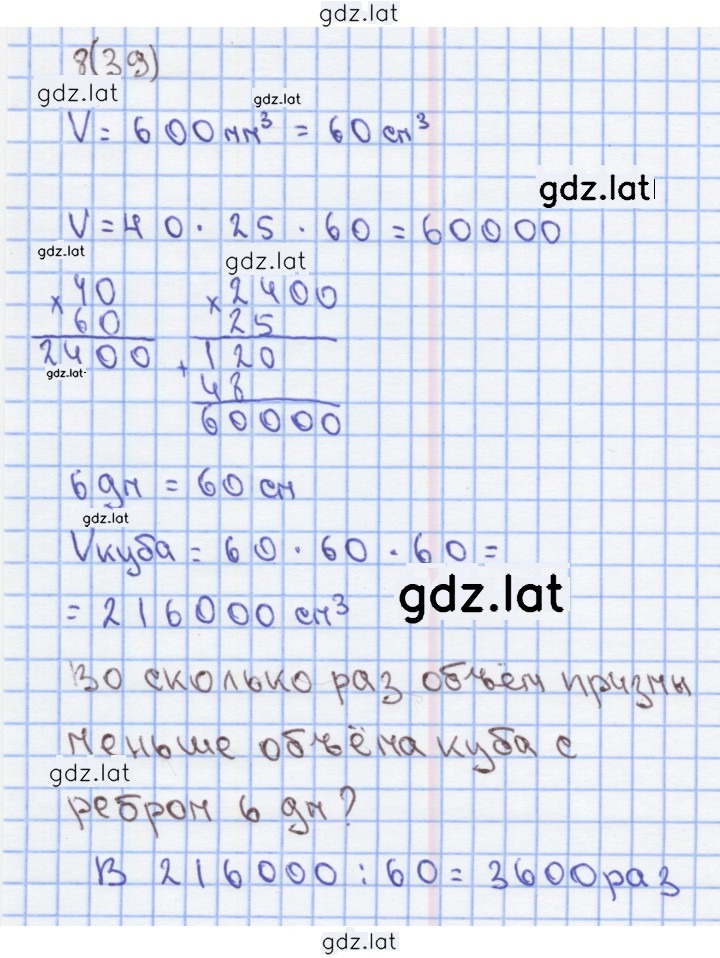 gdz.lat
8(39)
gdz.lat
gdz.lat
V = 600 мм³ = 60 см³
gdz.lat
V = 40 · 25 · 60 = 60000
gdz.lat
gdz.lat
× 40 × 2400
60 25
2400 + 120
gdz.lat
48
60000
6 дм = 60 см
gdz.lat
Vкуба = 60 · 60 · 60 =
= 216000 см³
gdz.lat
Во сколько раз объём призмы
меньше объёма куба с
gdz.lat
ребром 6 дм?
В 216000 : 60 = 3600 раз
gdz.lat